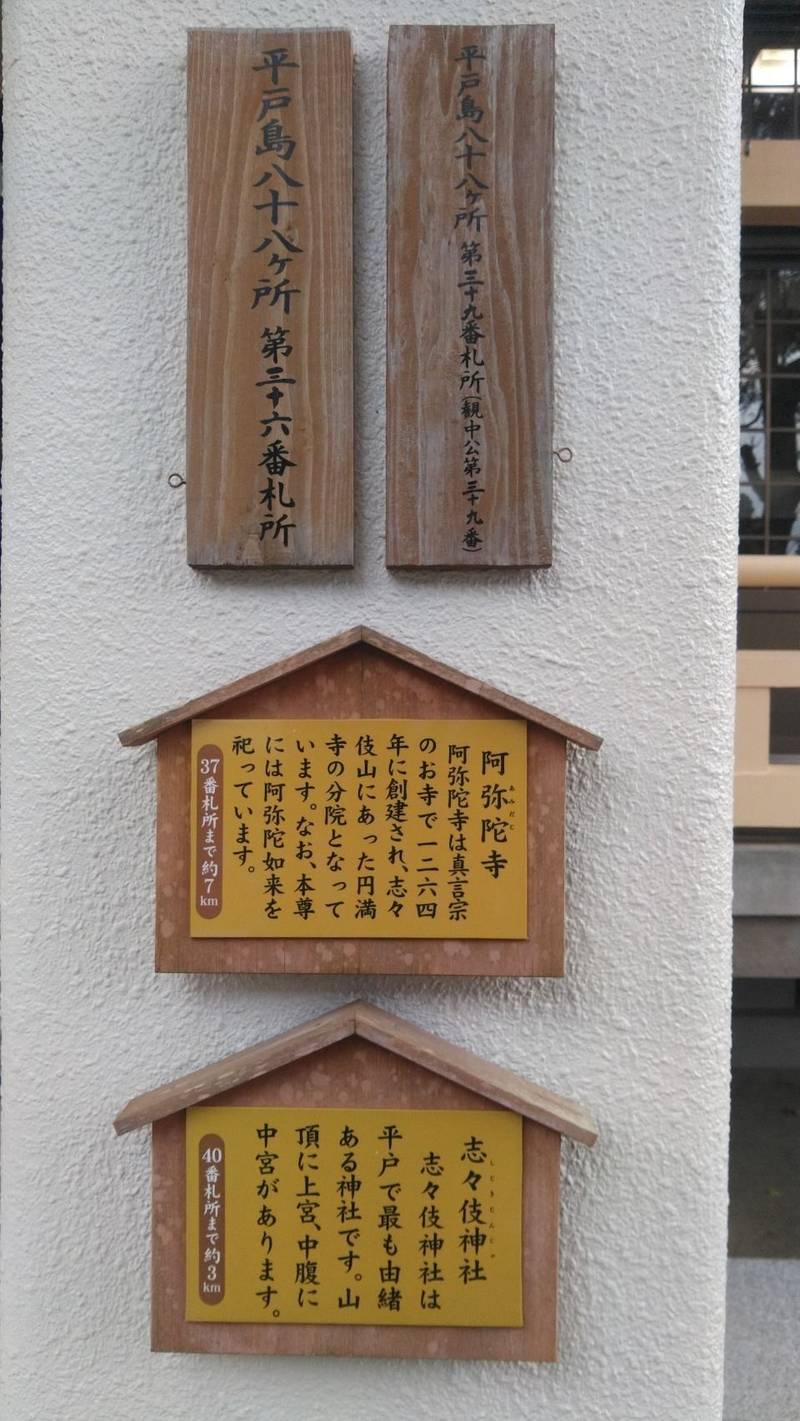 平戸島八十八ヶ所 第三十九番札所(観中公第三十九番)
平戸島八十八ヶ所 第三十六番札所
阿弥陀寺
あみだじ
阿弥陀寺は真言宗
のお寺で一二六四
年に創建され、志々
伎山にあった円満
寺の分院となって
います。なお、本尊
には阿弥陀如来を
祀っています。
37番札所まで約7km
志々伎神社
しじきじんじゃ
志々伎神社は
平戸で最も由緒
ある神社です。山
頂に上宮、中腹に
中宮があります。
40番札所まで約3km